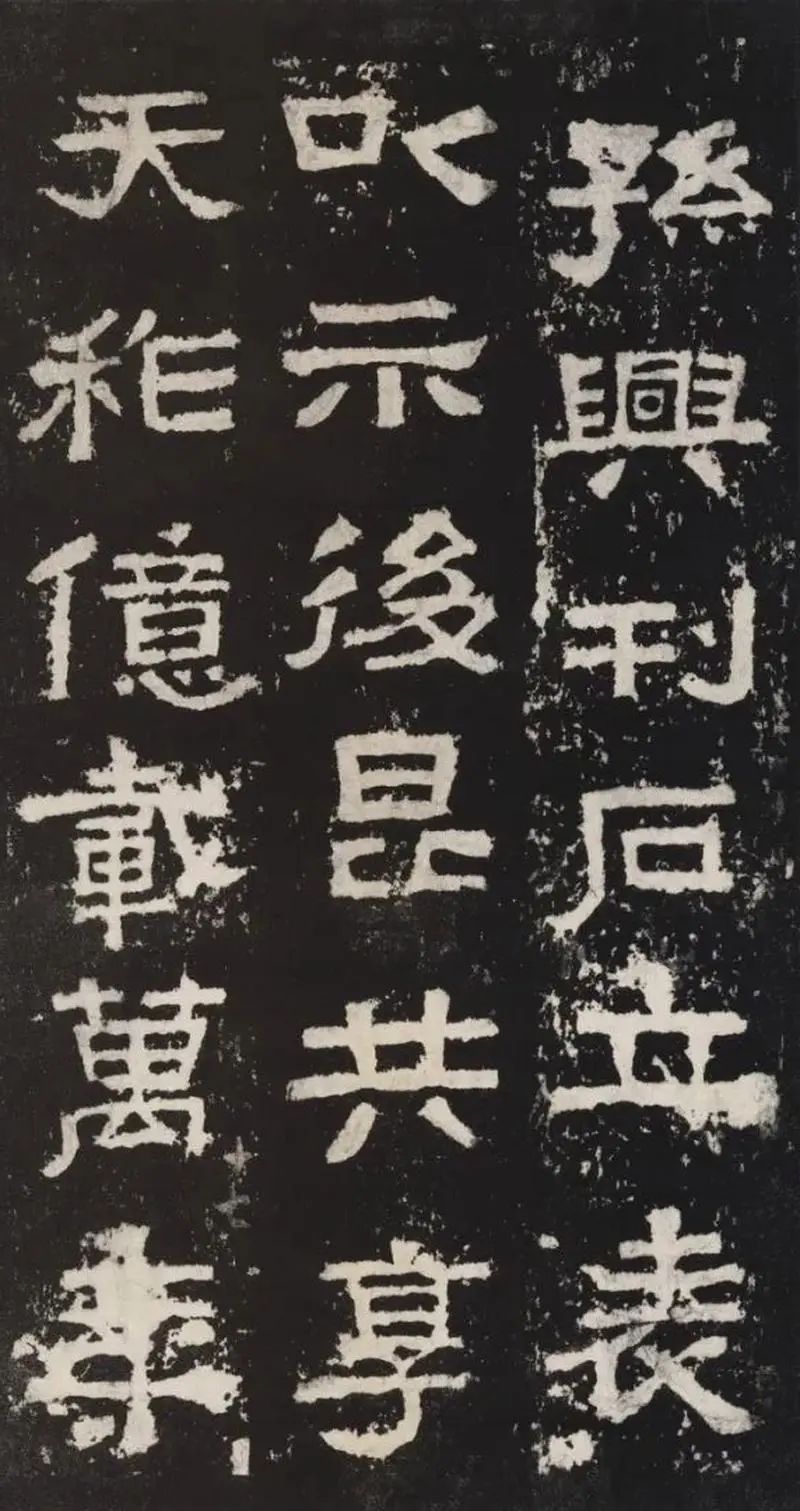 孫興刊石立表
㕥示後昆共享
天秨億載萬年